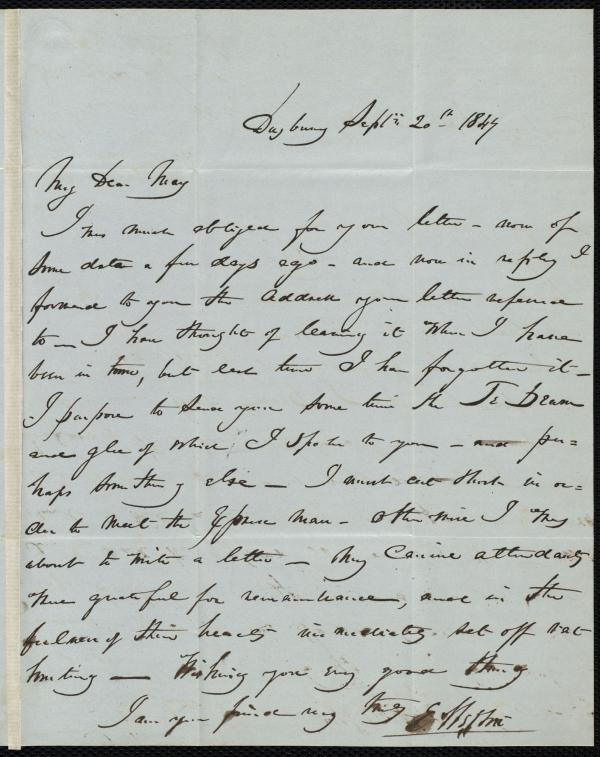 Duxbury Sept. 20th 1847
My Dear May
I was much obliged for your letter - now of
some date a few days ago - and now in reply I
forward to you the Address your letter reference
to - I have thought of leaving it when I have
been in town, but each time I have forgotten it -
I purpose to send you some time the Te Deum
and glee of which I spoke to you - and per=
haps something else - I must cut short in or=
der to meet the Express man - otherwise I was
about to write a letter - My Canine attendants
were grateful for remembrance, and in the
fulness of their hearts immediately set off rat
hunting - Wishing you every good thing
I am your friend very truly